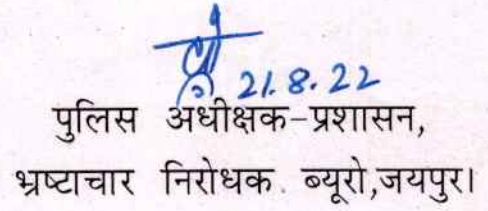 21.8.22
पुलिस अधीक्षक-प्रशासन,
भ्रष्टाचार निरोधक. ब्यूरो,जयपुर।